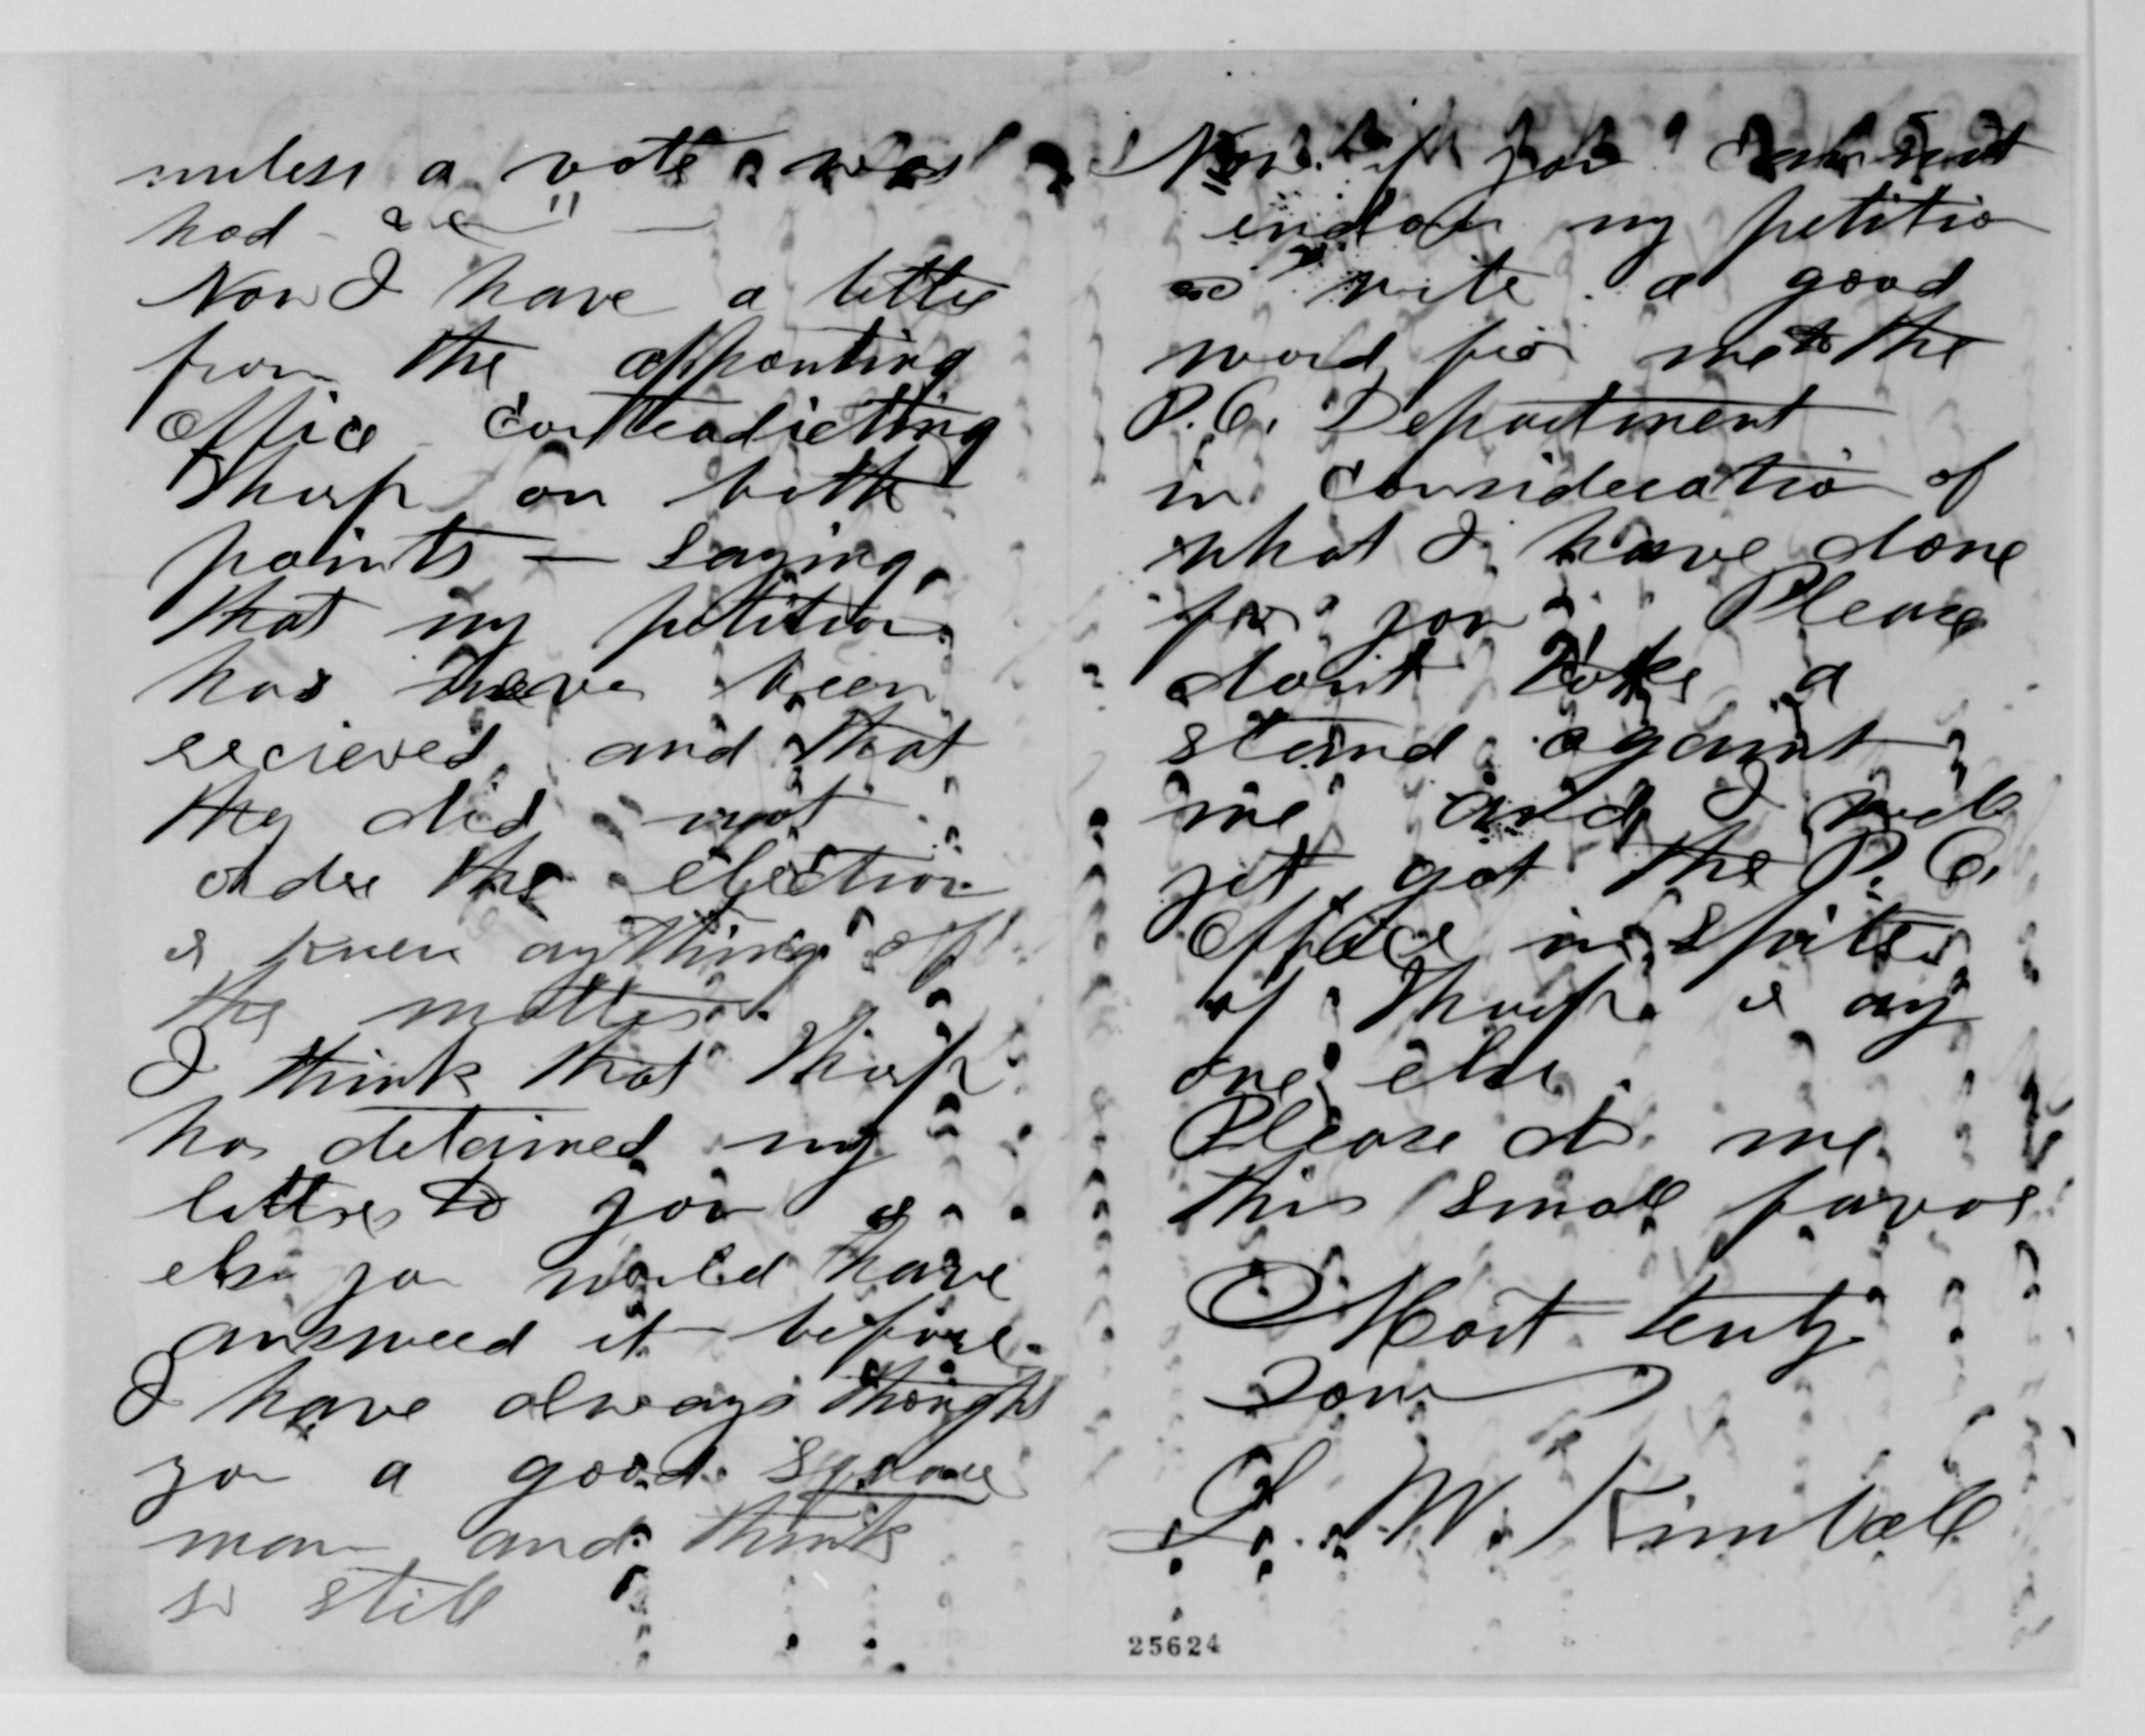 unless a vote was
had &c "
Now I have a letter
from the appointing
office contradicting
Tharp on both
points — saying
that my petition
has have been
recieved and that
they did not
order the election
or knew anything of
the matter.
I think that Tharp
has detained my
letters to you or
else you would have
answered it before.
I have always thought
you a good square
man and think
so still
Now if you can not
endorse my petition
write a good
word for me to the
P.O. Department
in consideration of
what I have done
for you. Please
dont take a
stand against
me and I will
yet get the P.O.
Office in spite
of Tharp or any
one else.
Please do me
this small favor
Most truly
Yours
L. W. Kimball
25624